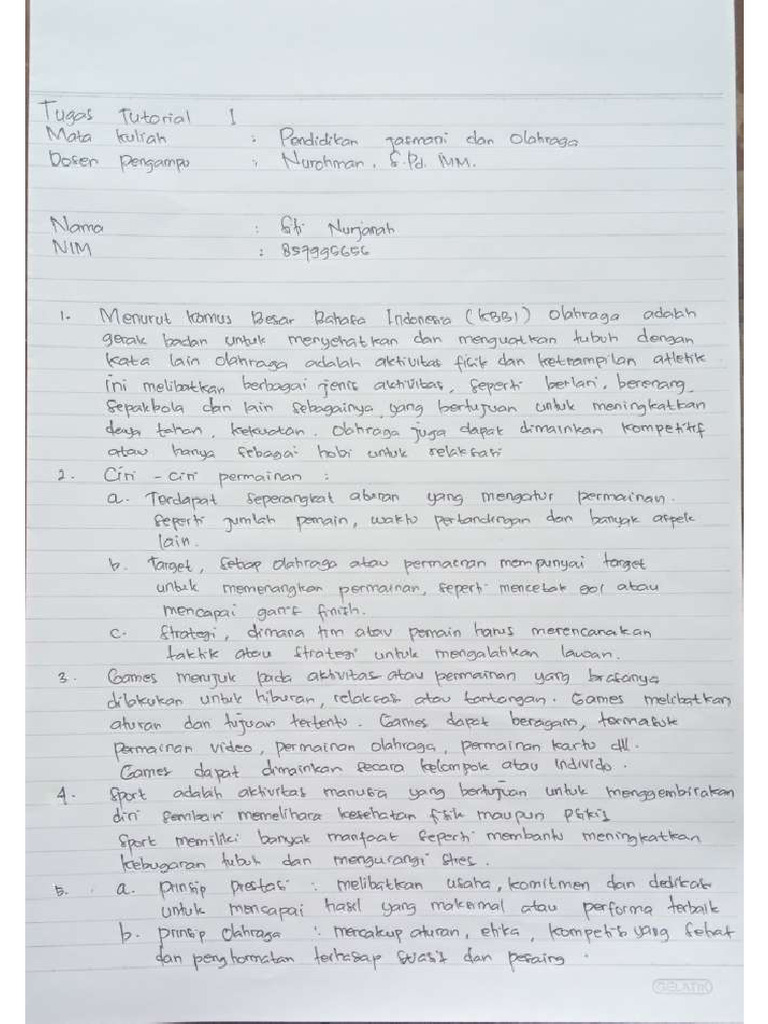 Tugas Tutorial 1
Mata kuliah : Pendidikan jasmani dan Olahraga
Dosen Pengampu : Nurohman, S.Pd. MM.
Nama : Siti Nurjanah
NIM : 857995656
1. Menurut Kamus Besar Bahasa Indonesia (KBBI) Olahraga adalah
gerak badan untuk menyehatkan dan menguatkan tubuh dengan
kata lain olahraga adalah aktivitas fisik dan ketrampilan atletik
ini melibatkan berbagai jenis aktivitas, seperti berlari, berenang,
sepakbola dan lain sebagainya, yang bertujuan untuk meningkatkan
daya tahan, kekuatan. Olahraga juga dapat dimainkan kompetitif
atau hanya sebagai hobi untuk relaksasi
2. Ciri - ciri permainan :
a. Terdapat seperangkat aturan yang mengatur permainan.
seperti jumlah pemain, waktu pertandingan dan banyak aspek
lain.
b. Target, setiap olahraga atau permainan mempunyai target
untuk memenangkan permainan, seperti mencetak gol atau
mencapai garis finish.
c. Strategi, dimana tim atau pemain harus merencanakan
taktik atau strategi untuk mengalahkan lawan.
3. Games merujuk pada aktivitas atau permainan yang biasanya
dilakukan untuk hiburan, relaksasi atau tantangan. Games melibatkan
aturan dan tujuan tertentu. Games dapat beragam, termasuk
permainan video, permainan olahraga, permainan kartu dll.
Games dapat dimainkan secara kelompok atau individu.
4. Sport adalah aktivitas manusia yang bertujuan untuk menggembirakan
diri sembari memelihara kesehatan fisik maupun psikis
Sport memiliki banyak manfaat seperti membantu meningkatkan
kebugaran tubuh dan mengurangi stres.
5. a. prinsip prestasi : melibatkan usaha, komitmen dan dedikasi
untuk mencapai hasil yang maksimal atau performa terbaik
b. prinsip olahraga : mencakup aturan, etika, kompetisi yang sehat
dan penghormatan terhadap wasit dan pesaing.
GELATIK